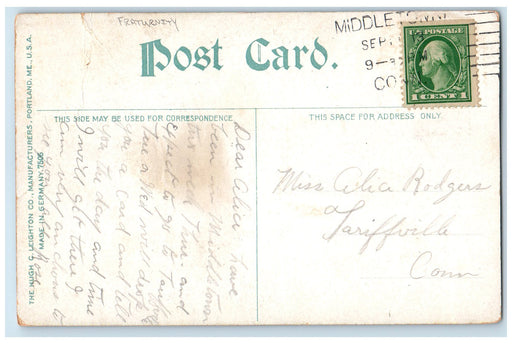 FRATURNITY
Post Card.
MIDDLETOWN
SEP
9-3
CO
U.S. POSTAGE
1 CENT 1
THIS SIDE MAY BE USED FOR CORRESPONDENCE
THIS SPACE FOR ADDRESS ONLY.
THE HUGH C. LEIGHTON CO., MANUFACTURERS, PORTLAND, ME., U.S.A.
MADE IN GERMANY. 7505
Dear Alice have
been in Middletown
this week Thur. and
expect to go to
Tues or Wed will drop
you a card and tell
you the day and time
I will get there I
am
Miss Alice Rodgers
Tariffville
Conn